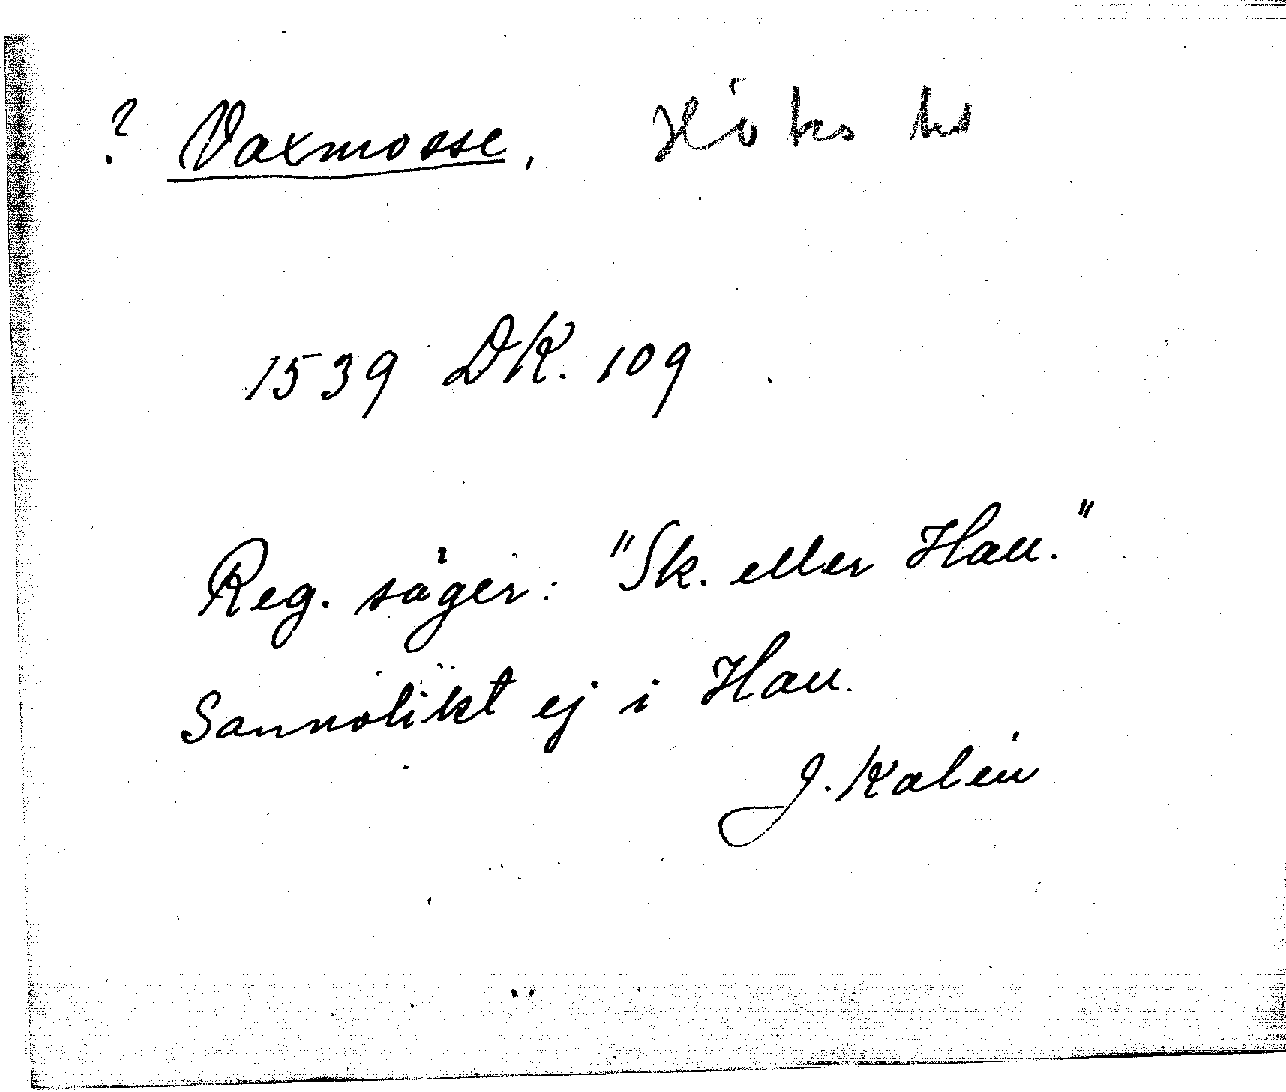 ? Vaxmosse, Höks hd
1539 DK. 109
Reg. säger: "Sk. eller Hall."
Sannolikt ej i Hall.
J. Kalén